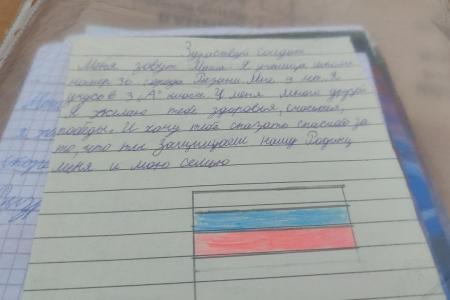 Здравствуй солдат
Меня зовут Я ученица школы
номер 36 города Рязани Мне 9 лет. Я
учусь в 3 „А" классе. У меня много друзей
Я желаю тебе здоровья, счастья,
победы. И хочу тебе сказать спасибо за
то, что ты защищаешь нашу Родину
меня и мою семью